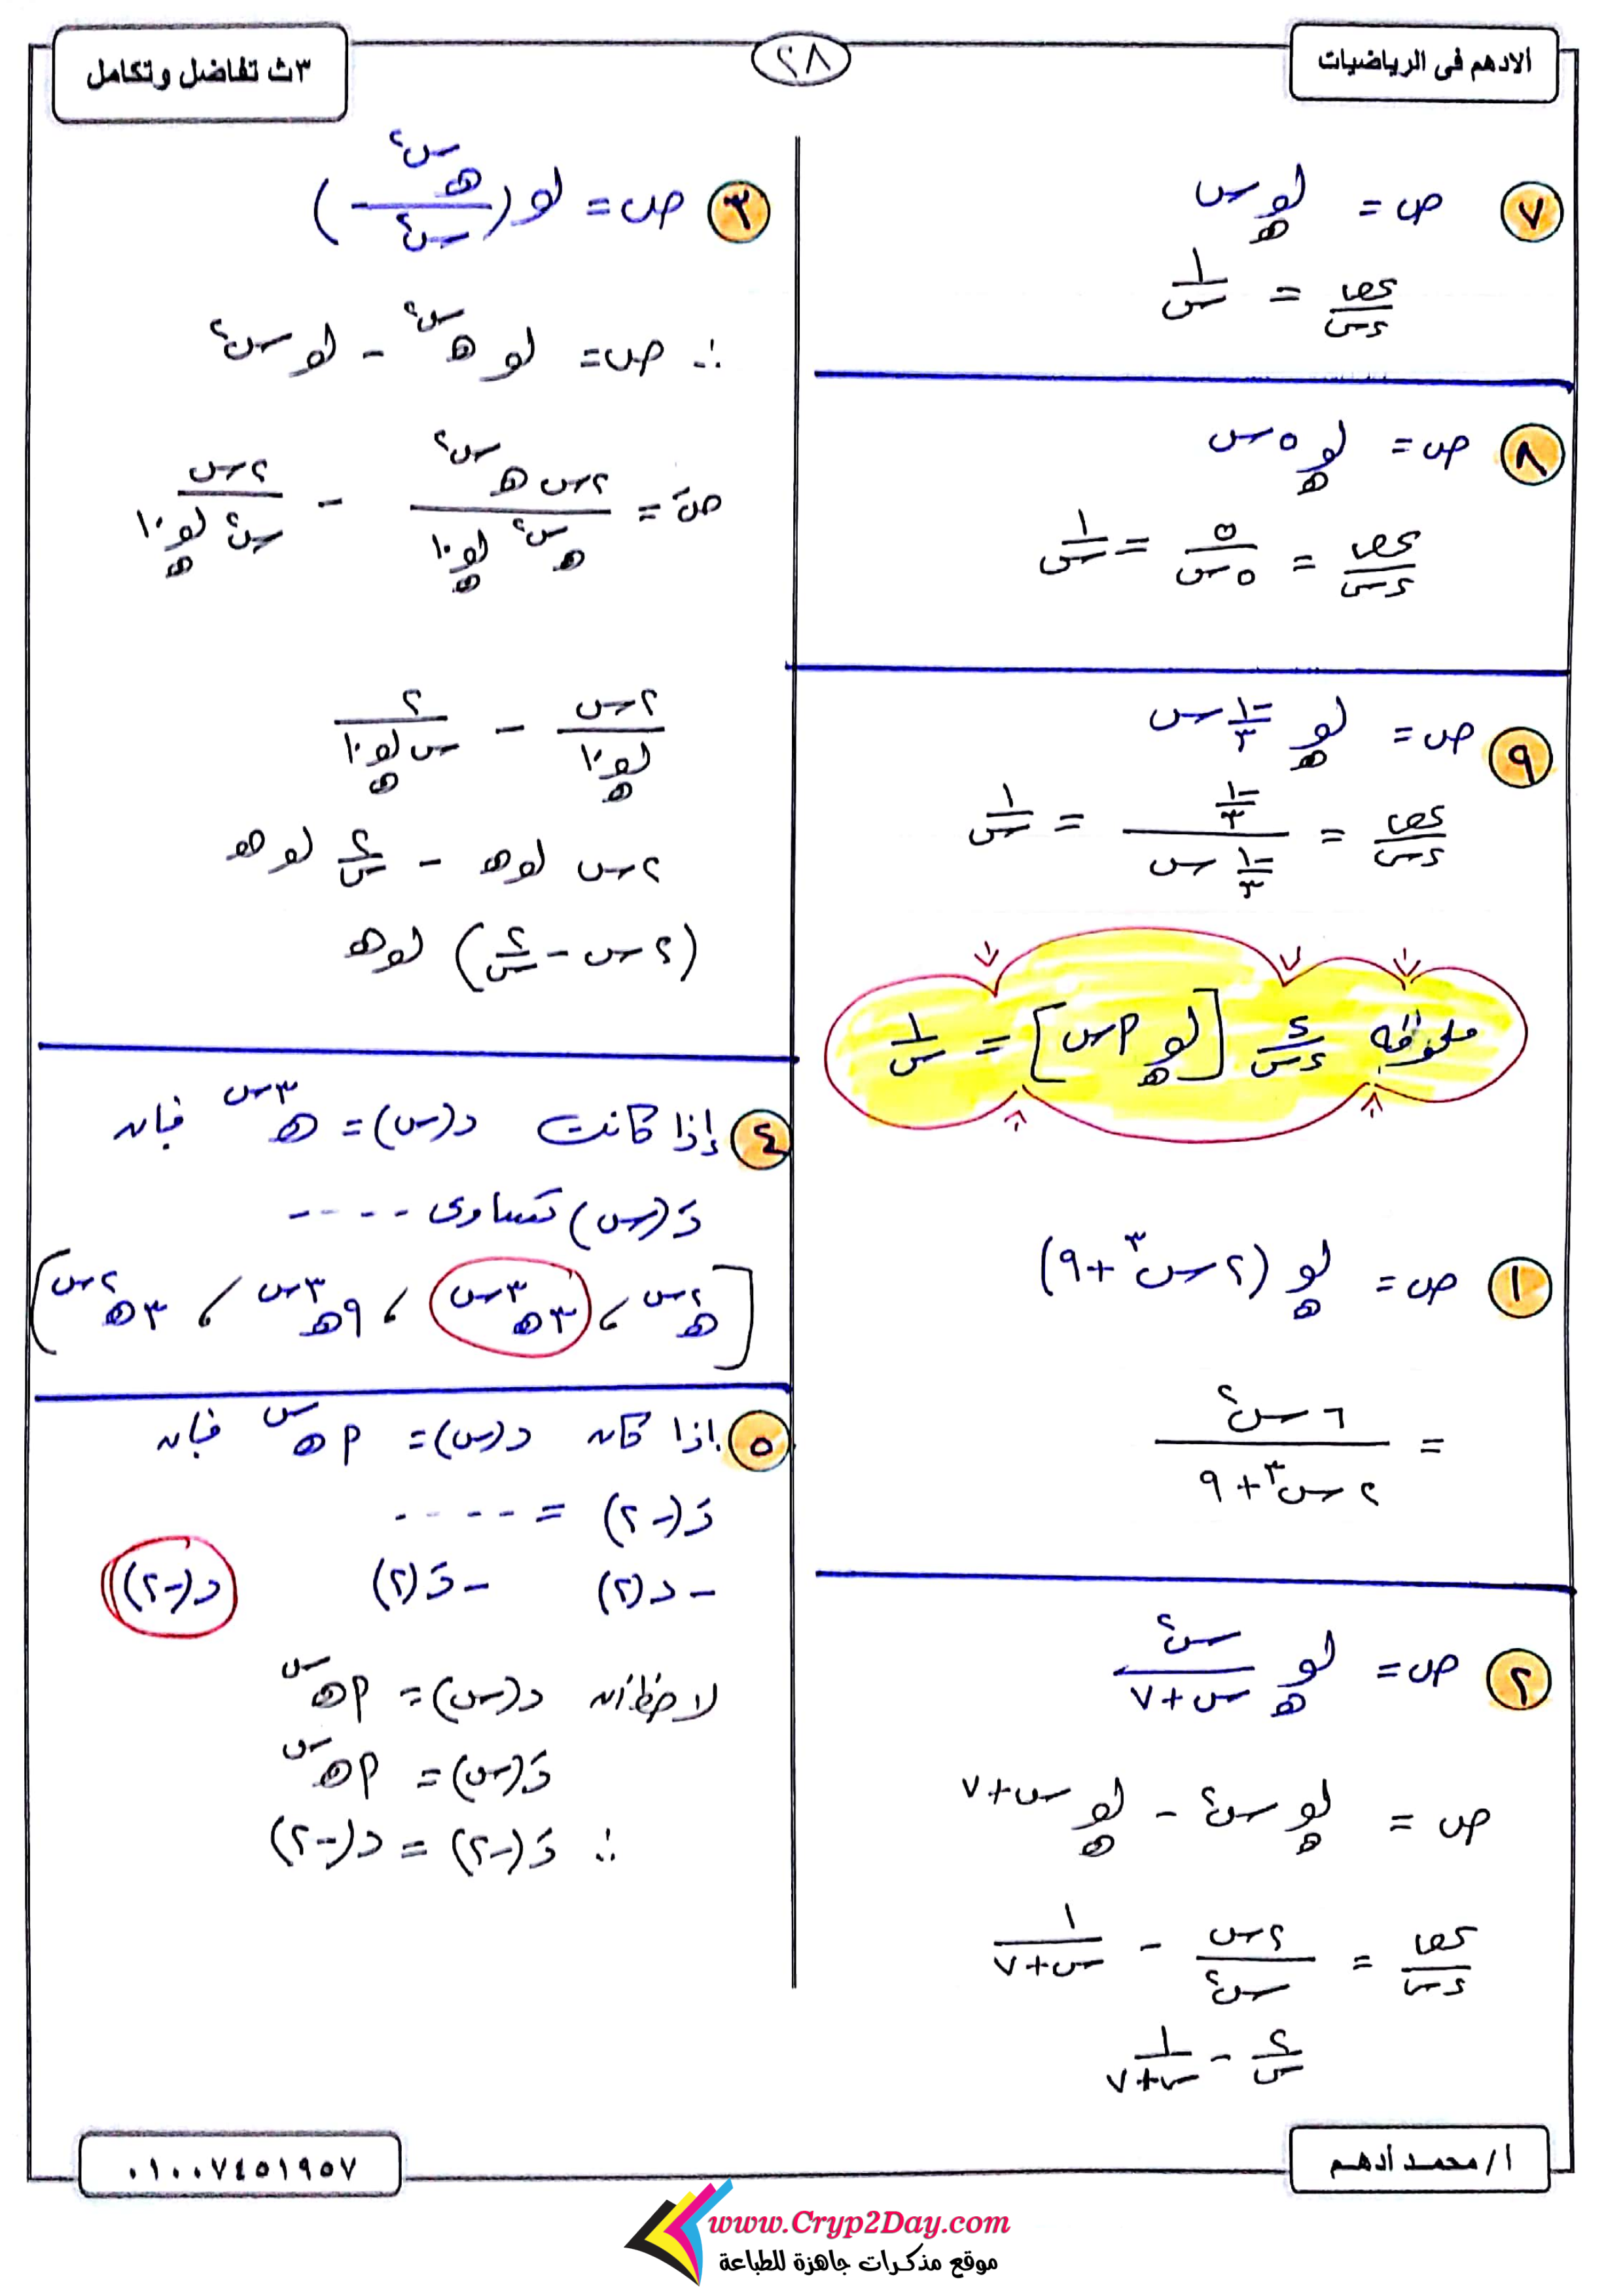 الادهم فى الرياضيات
٢٨
٣ث تفاضل وتكامل
٧ ص = لو_ه س
ءص/ءس = ١/س
٨ ص = لو_ه ٥س
ءص/ءس = ٥/٥س = ١/س
٩ ص = لو_ه -١/٣ س
ءص/ءس = (-١/٣)/(-١/٣ س) = ١/س
ملحوظه ء/ءس [لو_ه ٩س] = ١/س
١ ص = لو_ه (٢س^٣ + ٩)
= ٦س^٢/(٢س^٣ + ٩)
٢ ص = لو_ه س^٢/(س + ٧)
ص = لو_ه س^٢ - لو_ه س + ٧
ءص/ءس = ٢س/س^٢ - ١/(س + ٧)
٢/س - ١/(س + ٧)
٣ ص = لو (ه^س^٢/س^٢)
∴ ص = لو ه^س^٢ - لو س^٢
صَ = ٢س ه^س^٢/(ه^س^٢ لو_ه ١٠) - ٢س/(س^٢ لو_ه ١٠)
٢س/لو_ه ١٠ - ٢/(س لو_ه ١٠)
٢س لوه - ٢/س لوه
(٢س - ٢/س) لوه
٤ إذا كانت د(س) = ه^٣س فإن
دَ(س) تساوى ----
[ه^٢س ، ٣ه^٣س ، ٩ه^٣س ، ٣ه^٢س]
٥ إذا كان د(س) = ٩ه^س فإن
دَ(-٢) = ----
-د(٢) -دَ(٢) د(-٢)
لاحظ أن د(س) = ٩ه^س
دَ(س) = ٩ه^س
∴ دَ(-٢) = د(-٢)
أ/محمد أدهم
٠١٠٠٧٤٥١٩٥٧
www.Cryp2Day.com
موقع مذكرات جاهزة للطباعة